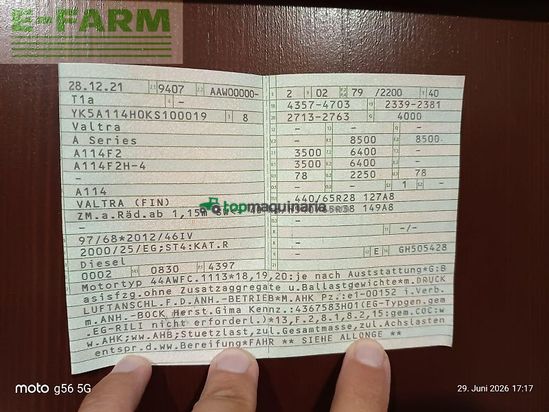 E-FARM
28.12.21 9407 AAW00000-
T1a -
YK5A114H0KS100019 8
Valtra
A Series
A114F2
A114F2H-4
-
A114
VALTRA (FIN)
ZM.a.Räd.ab 1,15m
-
97/68*2012/46IV
2000/25/EG;ST4:KAT.R
Diesel
0002 0830 4397
2 02 79 /2200 40
4357-4703 2339-2381
2713-2763 4000
- -
- 8500 8500
3500 6400 -
3500 6400 -
78 2250 78
- - 1 -
440/65R28 127A8
149A8
-
- -/-
- E GH505428
Motortyp 44AWFC.1113*18,19,20:je nach Auststattung*G:B
asisfzg.ohne Zusatzaggregate u.Ballastgewichte*m.DRUCK
LUFTANSCHL.F.D.ANH.-BETRIEB*M.AHK Pz.:e1-00152 i.Verb.
m.ANH.-BOCK Herst.Gima Kennz.:4367583H01(EG-Typgen.gem
.EG-RILI nicht erforderl.)*13,F.2,8.1,8.2,15:gem.COC;w
w.AHK;ww.AHB;Stuetzlast,zul.Gesamtmasse,zul.Achslasten
entspr.d.ww.Bereifung*FAHR ** SIEHE ALLONGE **
topmaquinaria
moto g56 5G
29. Juni 2026 17:17